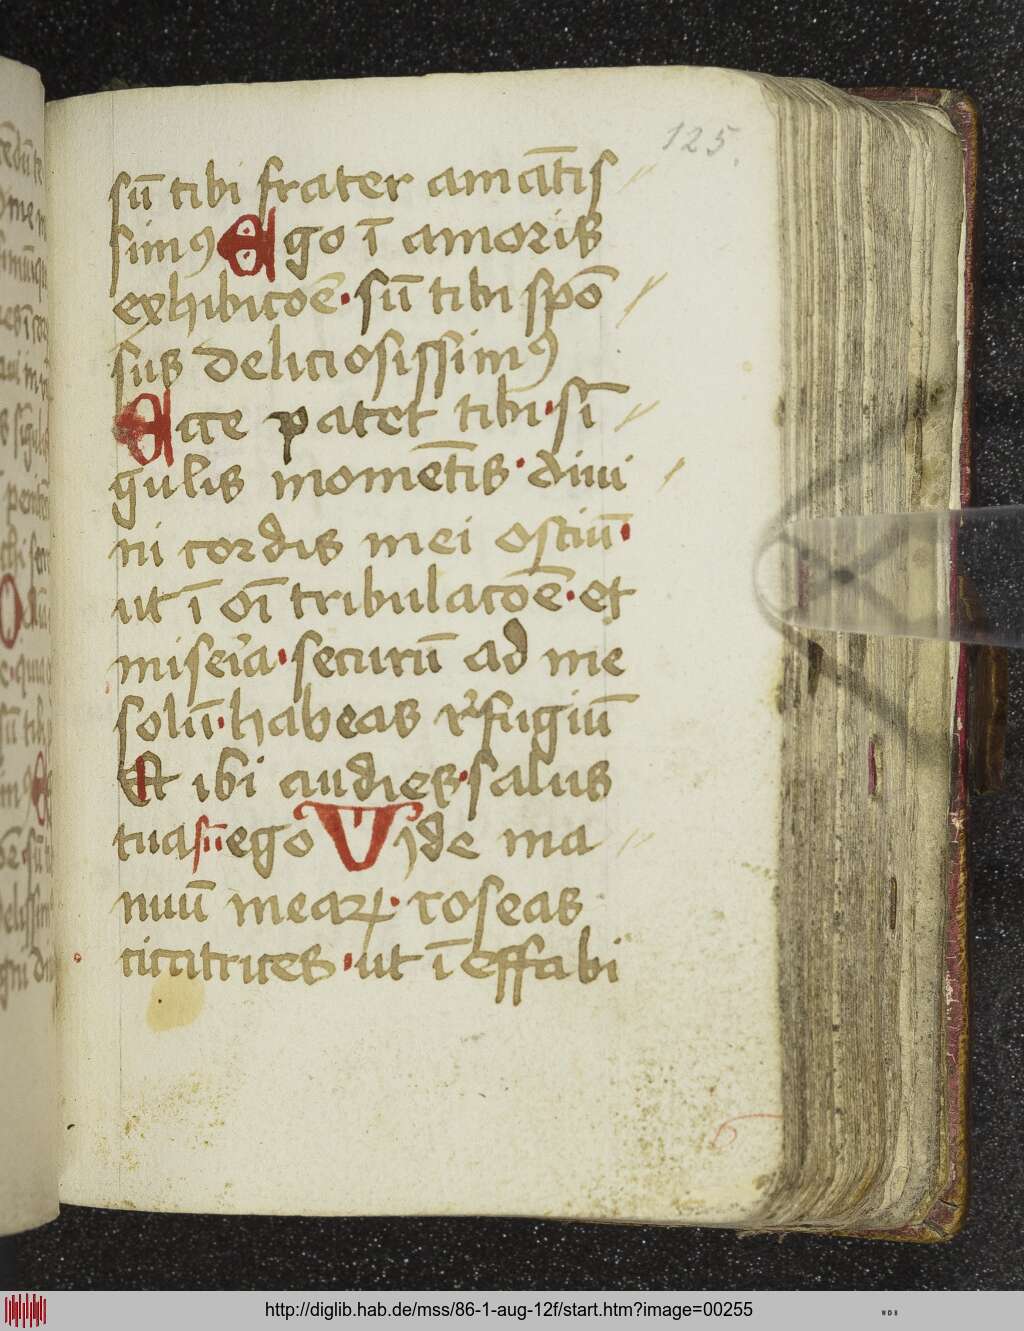 125.
sū tibi frater amātis
simꝰ Ego ī amoris
exhibicōē · sū tibi spō
sus deliciosissimꝰ
Ecce patet tibi · sī
gulis momētis · divi
ni cordis mei ostiū ·
ut ī oī tribulacōē · et
miseria · securū ad me
solū · habeas refugiū
Et ibi audies · salus
tua sū ego Vide ma
nuū mearꝝ · roseas
cicatrices · ut ī effabi
http://diglib.hab.de/mss/86-1-aug-12f/start.htm?image=00255